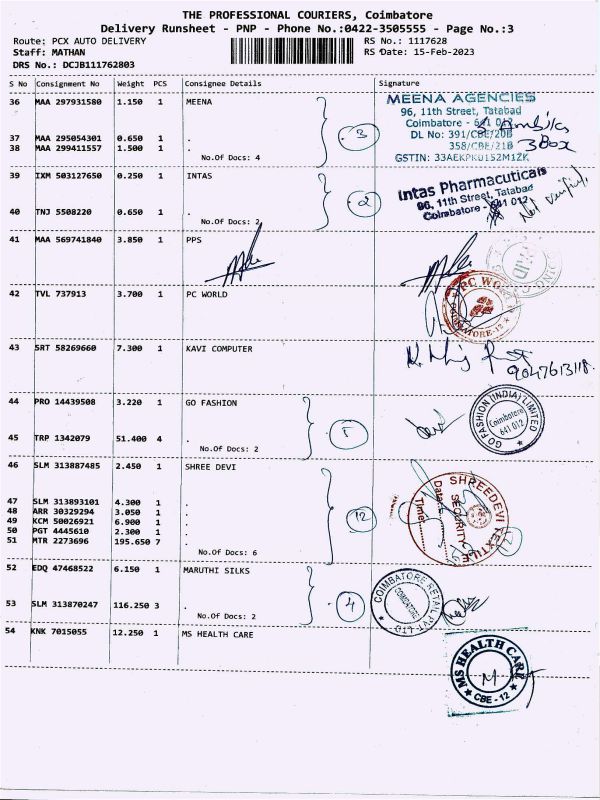 THE PROFESSIONAL COURIERS, Coimbatore
Delivery Runsheet - PNP - Phone No.:0422-3505555 - Page No.:3
Route: PCX AUTO DELIVERY
Staff: MATHAN
DRS No.: DCJB111762803
RS No.: 1117628
RS Date: 15-Feb-2023
S No Consignment No Weight PCS Consignee Details Signature
36 MAA 297931580 1.150 1 MEENA
37 MAA 295054301 0.650 1 .
38 MAA 299411557 1.500 1 .
No.Of Docs: 4
3
MEENA AGENCIES
96, 11th Street, Tatabad
Coimbatore - 641 012
DL No: 391/CBE/20B
358/CBE/21B
GSTIN: 33AEKPK0152M1ZK
3 Box
39 IXM 503127650 0.250 1 INTAS
40 TNJ 5508220 0.650 1 .
No.Of Docs: 2
2
Intas Pharmacuticals
96, 11th Street, Tatabad
Coimbatore - 641 012
Not verify
41 MAA 569741840 3.850 1 PPS
42 TVL 737913 3.700 1 PC WORLD
PC WORLD
COIMBATORE-12
43 SRT 58269660 7.300 1 KAVI COMPUTER
9047613118
44 PRO 14439508 3.220 1 GO FASHION
45 TRP 1342079 51.400 4 .
No.Of Docs: 2
5
GO FASHION (INDIA) LIMITED
Coimbatore
641 012
46 SLM 313887485 2.450 1 SHREE DEVI
47 SLM 313893101 4.300 1 .
48 ARR 30329294 3.050 1 .
49 KCM 50026921 6.900 1 .
50 PGT 4445610 2.300 1 .
51 MTR 2273696 195.650 7 .
No.Of Docs: 6
12
SHREEDEVI TEXTILE
SECURITY
Date:
Time:
52 EDQ 47468522 6.150 1 MARUTHI SILKS
53 SLM 313870247 116.250 3 .
No.Of Docs: 2
4
COIMBATORE RETAIL PVT LTD
COIMBATORE
54 KNK 7015055 12.250 1 MS HEALTH CARE
MS HEALTH CARE
CBE - 12